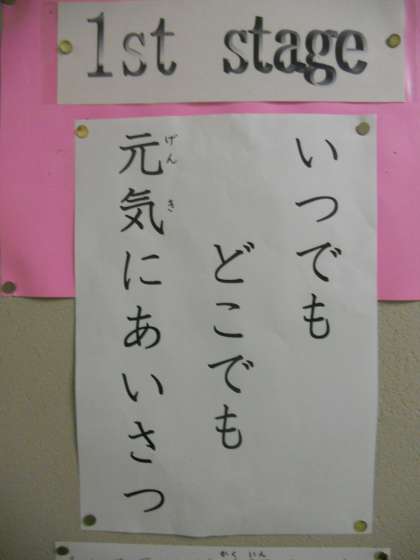 1st stage
いつでも
どこでも
元気にあいさつ
げんき
かくいん